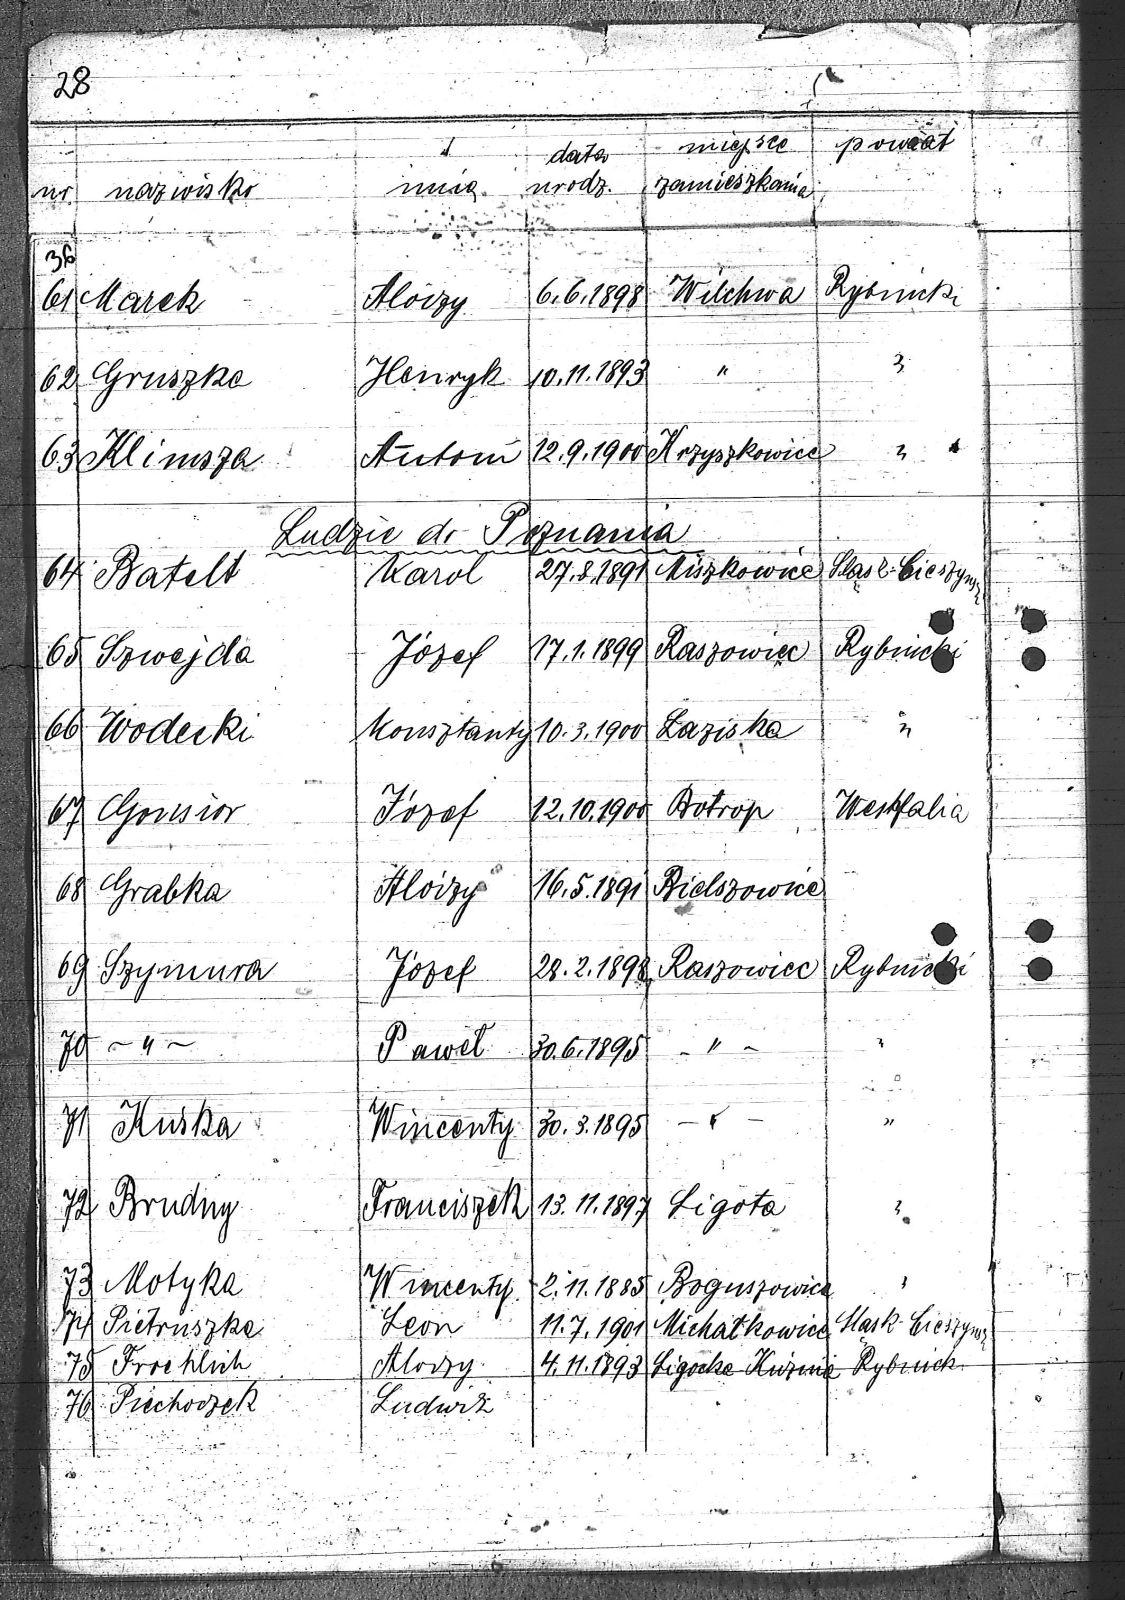 28
nr. nazwisko imię data urodz. miejsce zamieszkania powiat
36
61 Marek Alóizy 6.6.1898 Wilchwa Rybnicki
62 Gruszka Henryk 10.11.1893 " "
63 Klimsza Antoni 12.9.1900 Krzyszkowice "
Ludzie do Poznania
64 Batelt Karol 27.8.1891 Miszkowice Śląsk-Cieszyńs
65 Szwejda Józef 17.1.1899 Raszowice Rybnicki
66 Wodecki Konsztanty 10.3.1900 Łaziska "
67 Gonsior Józef 12.10.1900 Botrop Westfalia
68 Grabka Alóizy 16.5.1891 Bielszowice
69 Szymura Józef 28.2.1898 Raszowice Rybnicki
70 ~ " ~ Paweł 30.6.1895 - " - "
71 Kuśka Wincenty 30.3.1895 - " - "
72 Brudny Franciszek 13.11.1897 Ligota "
73 Motyka Wincenty 2.11.1885 Boguszowice "
74 Pietruszka Leon 11.7.1901 Michałkowice Śląsk-Cieszyńs
75 Froehlich Alojzy 4.11.1893 Ligocka Kuźnia Rybnick.
76 Piechoczek Ludwik